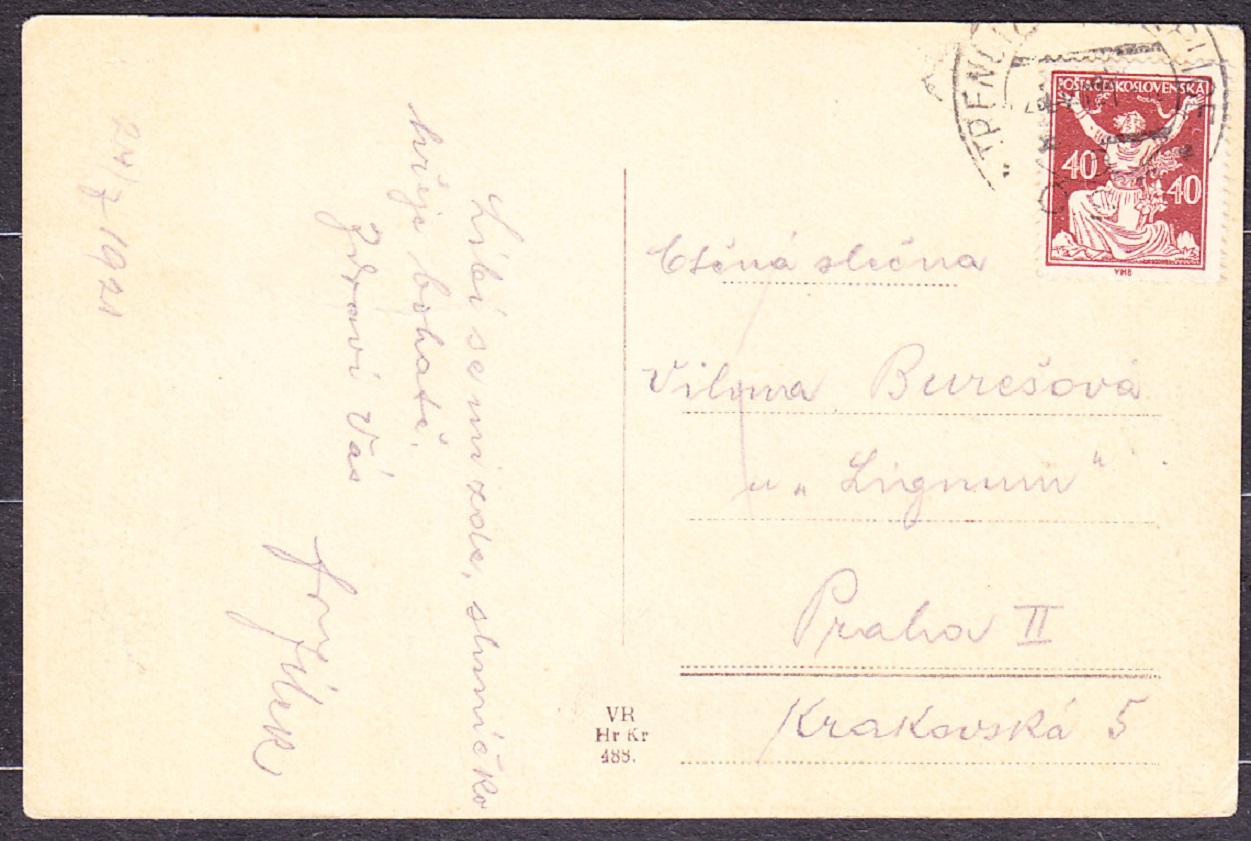 24/7 - 1921
Líbí se mi zde, sluníčko
hřeje bohatě.
Zdraví Vás
Ctěná slečna
Vilma Burešová
u „Lignum“
Praha II
Krakovská 5
VR
Hr Kr
488.
POŠTA ČESKOSLOVENSKÁ
40
40